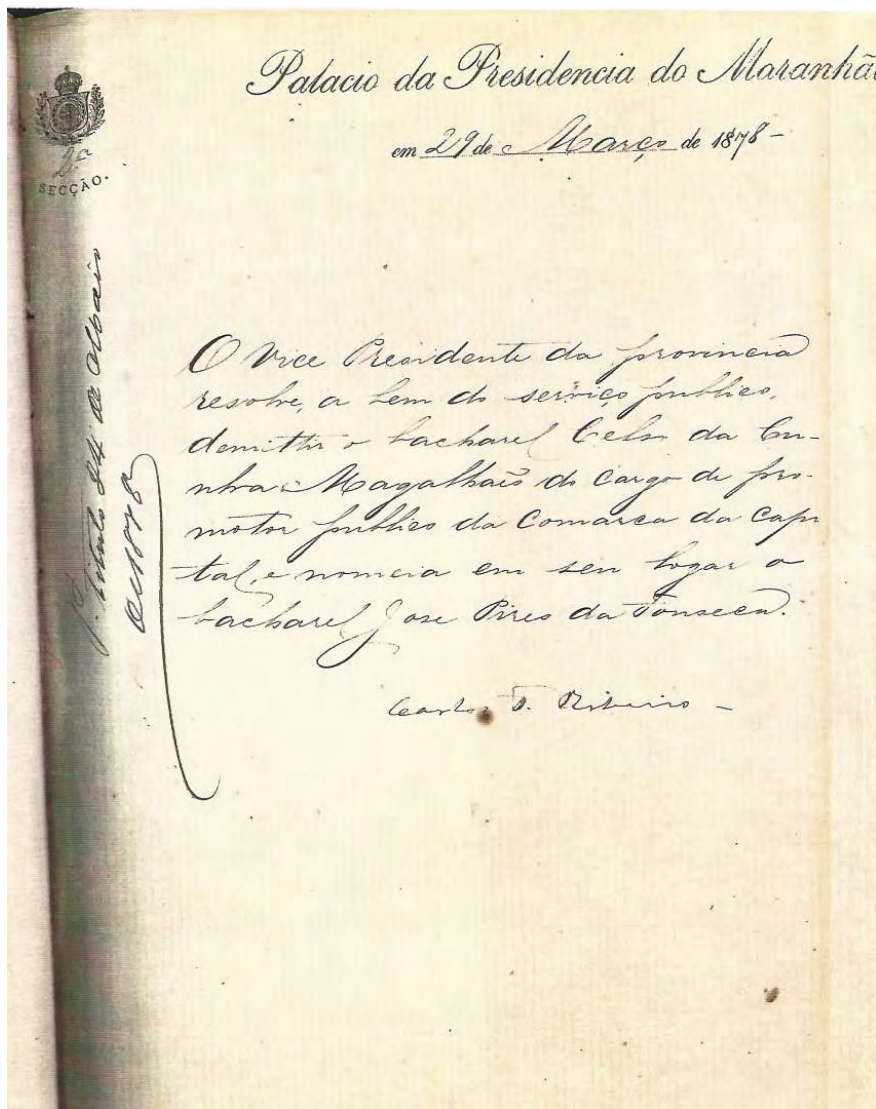 Palacio da Presidencia do Maranhã
em 29 de Março de 1878-
2.ª
SECÇÃO.
O Vice Presidente da provincia
resolve, a bem do serviço publico,
demittir o bacharel Celso da Cu-
nha Magalhães do cargo de pro-
motor publico da Comarca da Capi
tal, e nomeia em seu logar o
bacharel José Pires da Fonseca.
Carlos F. Ribeiro -
P. titulo 24 de Maio
de 1878